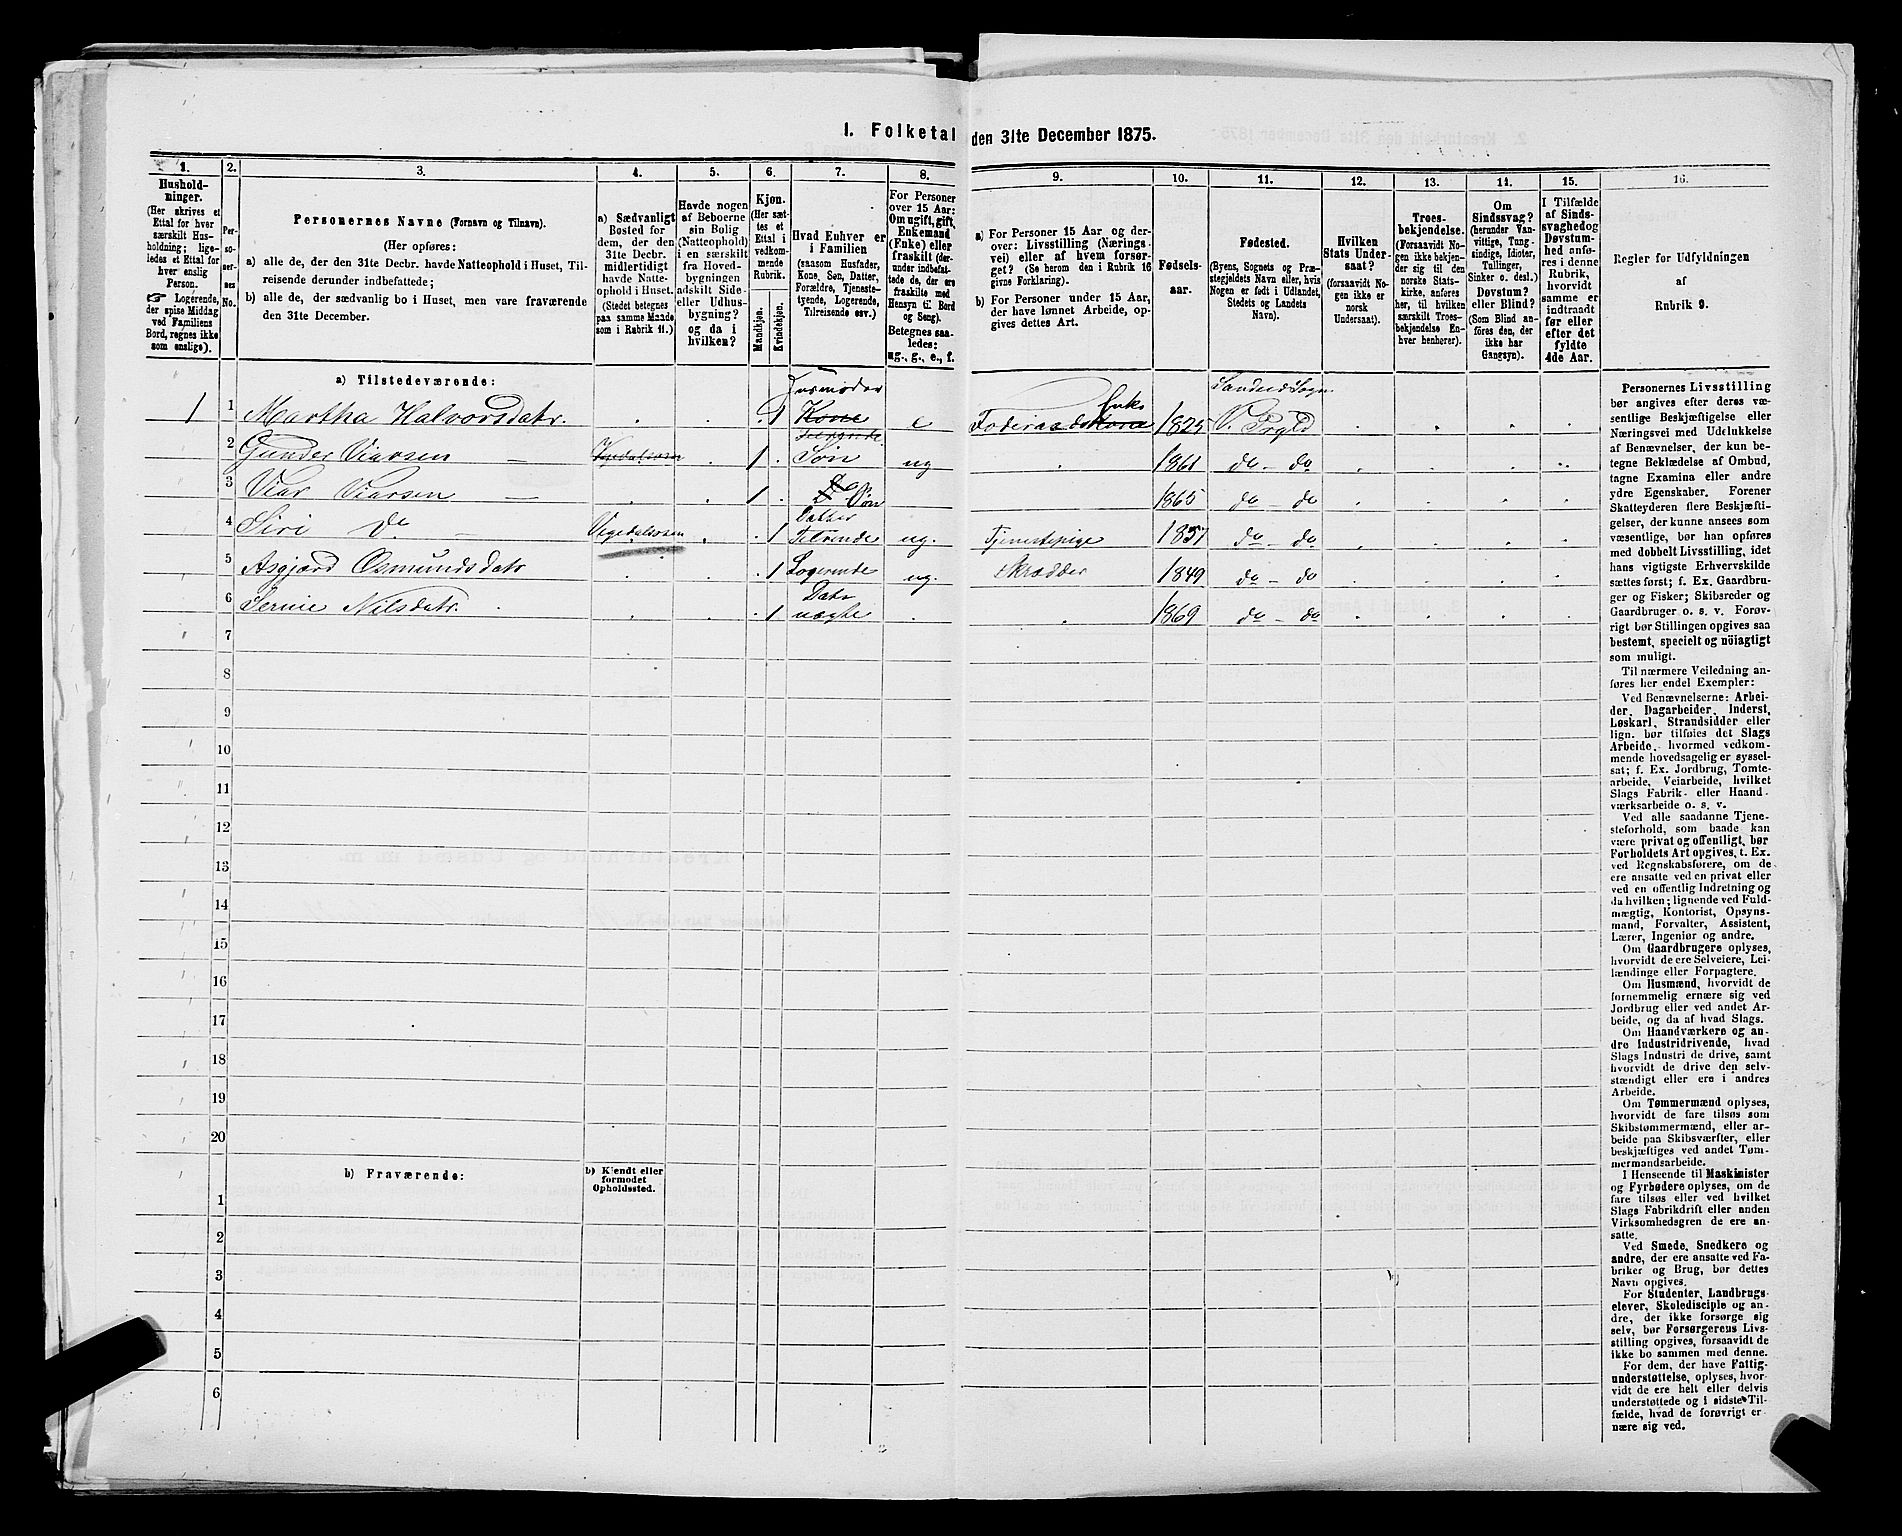 I. Folketal den 31te December 1875.
1. 2. 3. 4. 5. 6. 7. 8. 9. 10. 11. 12. 13. 14. 15. 16.
Husholdninger.
(Her skrives et
Ettal for hver
særskilt Husholdning;
ligeledes et Ettal for
hver enslig
Person.
☞ Logerende,
der spise Middag
ved Familiens
Bord, regnes ikke
som enslige).
Personernes No.
Personernes Navne (Fornavn og Tilnavn).
(Her opføres:
a) alle de, der den 31te Decbr. havde Natteophold i Huset, Tilreisende derunder indbefattede;
b) alle de, der sædvanlig bo i Huset, men vare fraværende
den 31te December.
a) Sædvanligt
Bosted for
dem, der den
31te Decbr.
midlertidigt
havde Natteophold i Huset.
(Stedet betegnes
paa samme Maade
som i Rubrik 11.)
Havde nogen
af Beboerne
sin Bolig
(Natteophold)
i en særskilt
fra Hovedbygningen
adskilt Side-
eller Udhusbygning?
og da i
hvilken?
Kjøn.
(Her sættes et
Ettal i
vedkommende
Rubrik.
Mandkjøn.
Kvindekjøn.
Hvad Enhver er
i Familien
(saasom Husfader,
Kone, Søn, Datter,
Forældre, Tjenestetyende, Logerende,
Tilreisende osv.)
For Personer
over 15 Aar:
Om ugift, gift,
Enkemand
(Enke) eller
fraskilt (derunder indbefattede de, der ere
fraskilte med
Hensyn til Bord
og Seng).
Betegnes saaledes:
ug., g., e., f.
a) For Personer 15 Aar og derover: Livsstilling (Næringsvei) eller af hvem forsørget? (Se herom den i Rubrik 16
givne Forklaring).
b) For Personer under 15 Aar,
der have lønnet Arbeide, opgives dettes Art.
Fødselsaar.
Fødested.
(Byens, Sognets og Præstegjeldets Navn eller, hvis
Nogen er født i Udlandet,
Stedets og Landets
Navn).
Hvilken
Stats Undersaat?
(forsaavidt Nogen ikke er
norsk
Undersaat).
Troesbekjendelse.
(Forsaavidt Nogen ikke bekjender sig til den
norske Statskirke, anføres
her, til hvilken
særskilt Troesbekjendelse Enhver henhører).
Om
Sindssvag?
(herunder Vanvittige, Tungsindige, Idioter,
Tullinger,
Sinker o. desl.)
Døvstum?
eller Blind?
(Som Blind anføres den, der
ikke har
Gangsyn).
I Tilfælde
af Sindssvaghed og
Døvstumhed anføres i denne
Rubrik,
hvorvidt
samme er
indtraadt
før eller
efter det
fyldte
4de Aar.
Regler for Udfyldningen
af
Rubrik 9.
a) Tilstedeværende:
1 1 Martha Halvorsdatr. 1 Husmoder Kone e Føderaadskone Enke 1825 Sandeid Sogn V.
2 Gunder Viarsen 1 Søn ug 1861 do - do
3 Viar Viarsen 1 Søn 1865 do - do
4 Siri do 1 Datter ug. Tjenestepige 1857 do - do
5 Asgjerd Osmundsdatr 1 Logerende ug. Skrædder 1849 do - do
6 Serine Nilsdatr. 1 Datr 1869 do - do
7
8
9
10
11
12
13
14
15
16
17
18
19
20
b) Fraværende:
b) Kjendt eller
formodet
Opholdssted.
1
2
3
4
5
6
Personernes Livsstilling
bør angives efter deres væsentlige Beskjæftigelse eller
Næringsvei med Udelukkelse
af Benævnelser, der kun betegne Beklædelse af Ombud,
tagne Examina eller andre
ydre Egenskaber. Forener
Skatteyderen flere Beskjæftigelser, der kunne ansees som
væsentlige, bør han opføres
med dobbelt Livsstilling, idet
hans vigtigste Erhvervskilde
sættes først; f. Ex. Gaardbruger og Fisker; Skibsreder og
Gaardbruger o. s. v. Forøvrigt bør Stillingen opgives saa
bestemt, specielt og nöiagtigt
som muligt.
Til nærmere Veiledning anføres her endel Exempler:
Ved Benævnelserne: Arbeider, Dagarbeider, Inderst,
Løskarl, Strandsidder eller
lign. bør tilføies det Slags
Arbeide, hvormed vedkommende hovedsagelig er sysselsat; f. Ex. Jordbrug, Tomtearbeide, Veiarbeide, hvilket
Slags Fabrik- eller Haandværksarbeide o. s. v.
Ved alle saadanne Tjenesteforhold, som baade kan
være privat og offentligt, bør
Forholdets Art opgives, t. Ex.
ved Regnskabsførere, om de
ere ansatte ved en privat eller
ved en offentlig Indretning og
da hvilken; lignende ved Fuldmægtig, Kontorist, Opsynsmand, Forvalter, Assistent,
Lærer, Ingeniør og andre.
Om Gaardbrugere oplyses,
hvorvidt de ere Selveiere, Leilændinge eller Forpagtere.
Om Husmænd, hvorvidt de
fornemmelig ernære sig ved
Jordbrug eller ved andet Arbeide, og da af hvad Slags.
Om Haandværkere og andre Industridrivende, hvad
Slags Industri de drive, samt
hvorvidt de drive den selvstændigt eller ere i andres
Arbeide.
Om Tømmermænd oplyses,
hvorvidt de fare tilsøs som
Skibstømmermænd, eller arbeide paa Skibsværfter, eller
beskjæftiges ved andet Tømmermandsarbeide.
I Henseende til Maskinister
og Fyrbødere oplyses, om de
fare tilsøs eller ved hvilket
Slags Fabrikdrift eller anden
Virksomhedsgren de ere ansatte.
Ved Smede, Snedkere og
andre, der ere ansatte ved Fabriker og Brug, bør dettes
Navn opgives.
For Studenter, Landbrugselever, Skoledisciple og andre, der ikke forsørge sig
selv, bør Forsørgerens Livsstilling opgives, forsaavidt de
ikke bo sammen med denne.
For dem, der have Fattigunderstøttelse, oplyses, hvorvidt de ere helt eller delvis
understøttede og i sidste Tilfælde, hvad de forøvrigt ernære sig ved.